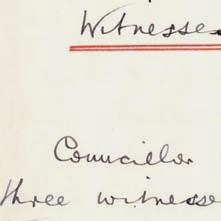 Witnesses
Councillor
three witnesse